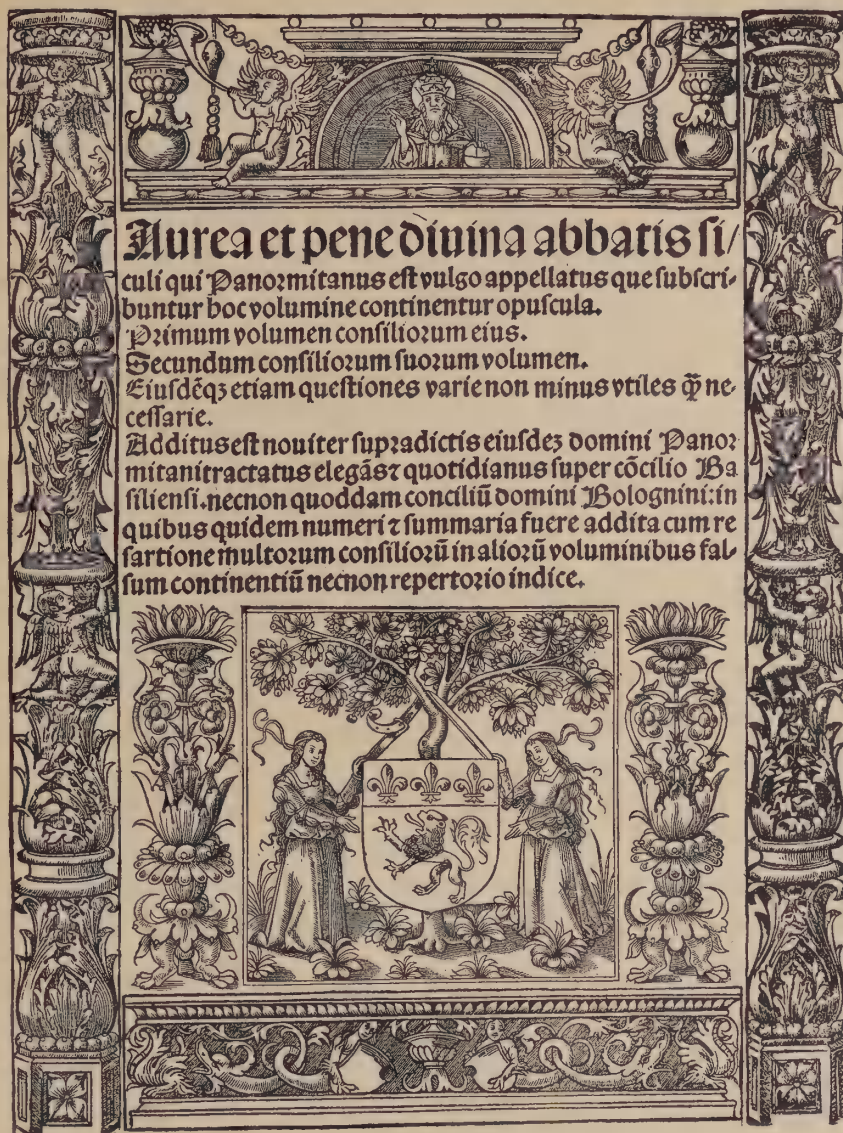 Aurea et pene diuina abbatis si/
culi qui Panormitanus est vulgo appellatus que subscri-
buntur hoc volumine continentur opuscula.
Primum volumen consiliorum eius.
Secundum consiliorum suorum volumen.
Eiusdēqꝫ etiam questiones varie non minus vtiles q̄ꝫ ne-
cessarie.
Additus est nouiter supradictis eiusdeꝫ domini Panor
mitani tractatus elegās ⁊ quotidianus super cōcilio Ba
siliensi.necnon quoddam conciliū domini Bolognini:in
quibus quidem numeri ⁊ summaria fuere addita cum re
sartione multorum consiliorū in aliorū voluminibus fal-
sum continentiū necnon repertorio indice.